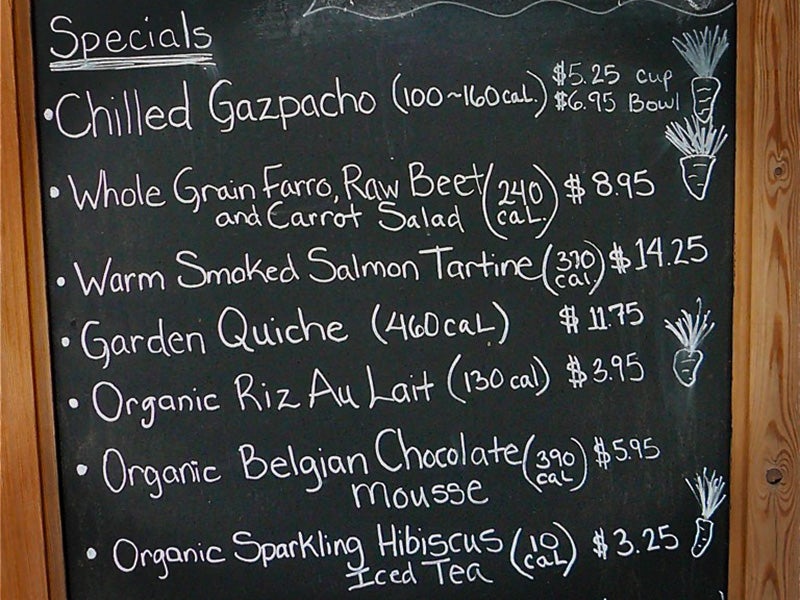 Specials
• Chilled Gazpacho (100~160cal.) $5.25 cup
$6.95 Bowl
• Whole Grain Farro, Raw Beet (240 $8.95
and Carrot Salad caL.)
• Warm Smoked Salmon Tartine (370 cal) $14.25
• Garden Quiche (460caL) $11.75
• Organic Riz Au Lait (130 cal) $3.95
• Organic Belgian Chocolate (390 caL) $5.95
mousse
• Organic Sparkling Hibiscus (10 caL) $3.25
Iced Tea